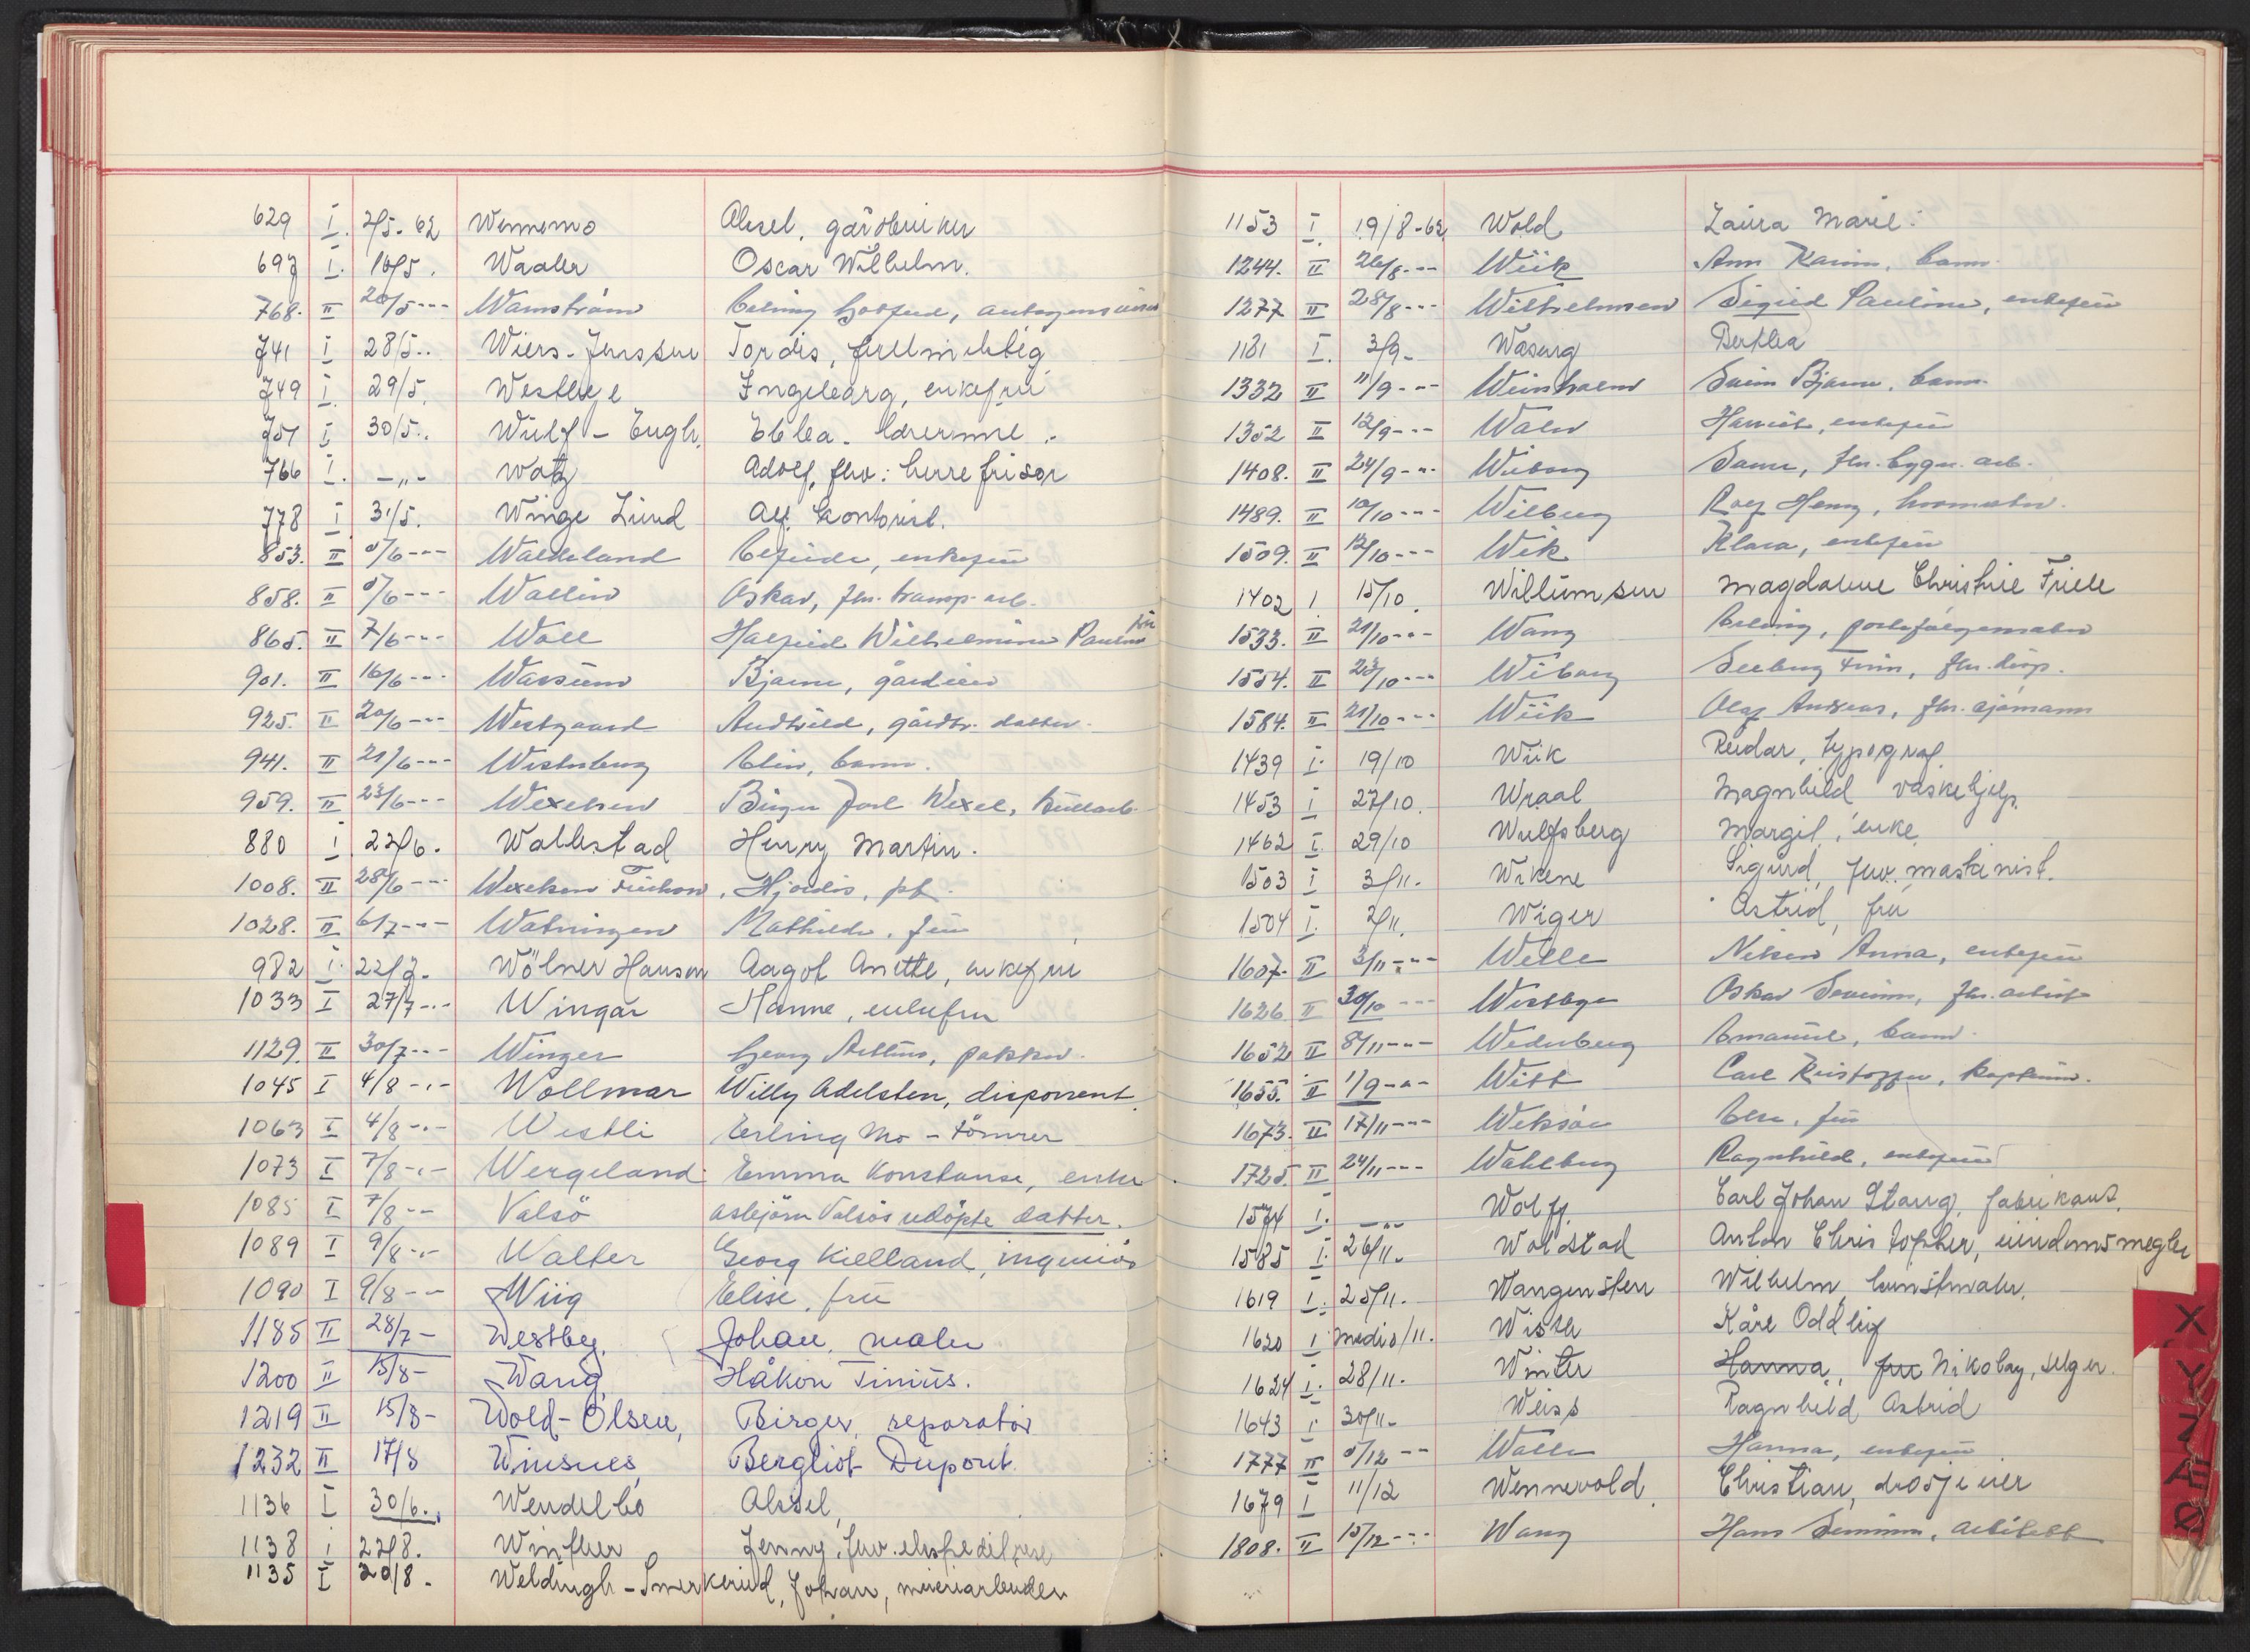 629 I. 2/5-62 Wennemo Aksel, gårdbruker
697 I. 16/5. Waaler Oscar Wilhelm.
768. II 20/5 --- Warnström Erling Gotfred,
741 I 28/5.. Wiers-Jenssen Tordis,
749 I. 29/5. Westbye Ingeborg, enkefru
751 I. 30/5.. Wulf-Engh. Ebba - lærerinne.
766 I. -"- Watz Adolf, fhv: herrefrisør
778 I 31/5. Winge Lund Alf. kontorist.
853. II 5/6 --- Waldeland Elfrida, enkefru
858. II 5/6 --- Wallin Oskar, fhv. transp. arb.
865. II 7/6 --- Woll Halfrid Wilhelmine Pauline frk
901. II 16/6 --- Warsund Bjarne, gårdeier
925. II 20/6 --- Westgaard Audhild, gårdbr. datter.
941. II 21/6 --- Westerberg Elin, barn.
959. II 23/6 --- Wexelsen Birger Jarl Wexel,
880 I 22/6. Wollestad Henry Martin.
1008. II 28/6 --- Wexelsen Hjørdis,
1028. II 6/7 --- Watningen Mathilde, fru
982 I. 22/7. Wölner Hansen Aagot Anette, enkefru
1033 I 27/7 -.- Wingår Hanne, enkefru
1129. II 30/7 --- Winger Georg Arthur, pakker.
1045 I 4/8 -.- Wollmar Willy Adelsten, disponent.
1063 I 4/8 -.- Westli Erling Mo - tömrer
1073 I 7/8 -.- Wergeland Emma Konstanse, enke
1085 I 7/8 -- Valsö Asbjörn Valsös udöpte datter.
1089 I 9/8 -.- Walter Georg Kielland, ingeniør
1090 I 9/8 -- Wiig Elise, fru
1185 II 28/7 - Westby, Johan, maler
1200 II 15/8 - Wang, Håkon Tinius.
1219 II 15/8 - Wold-Olsen, Birger, reparatör
1232 II 17/8 Winsnes, Bergliot Duport.
1136 I 30/6. Wendelbo Aksel,
1138 I 22/8. Winther Jenny, fhv. ekspeditrise
1135 I 20/8. Weldingh-Smerkerud, Johan, meieriarbeider
1153 I. 19/8-62 Wold Laura Marie.
1244. II 26/8 --- Wiik Ann Karin, barn.
1277 II 28/8 --- Wilhelmsen Sigrid Pauline, enkefru
1181 I. 3/9 - Waserg Berthea
1332 II 11/9 --- Weinholdt Svein Bjarne, barn.
1352 II 12/9 --- Waler Harriet, enkefru
1408. II 24/9 --- Wiborg fhv. bygn. arb.
1489. II 10/10 --- Wilberg Rolf Henry,
1509. II 12/10 --- Wik Klara, enkefru
1402 I 15/10. Willumsen Magdalene Christine Friele
1533. II 21/10 --- Wang Erling,
1554. II 23/10 --- Wiborg Finn, fhv. disp.
1584. II 21/10 --- Wiik Olaf Andreas, fhv. sjømann
1439 I. 19/10 Wiik Reidar, typograf.
1453 I 27/10. Wraal Magnhild vaskehjelp.
1462 I. 29/10 Wulfsberg Margit, enke
1503 I 3/11. Wikene Sigurd, fhv. maskinist.
1504 I. 2/11. Wiger Astrid, fru
1607. II 3/11 --- Wille Nilsen Anna, enkefru
1626. II 30/10 --- Westbye Oskar Severin, fhv. arbeid
1652 II 8/11 --- Wederberg Emanuel, barn.
1655. II 1/9 --- Witt Carl Kristoffer, kaptein.
1673. II 17/11 --- Weksåe Else, fru
1725. II 24/11 --- Wahlberg Ragnhild, enkefru
1574 I. -"- Wolff. Carl Johan Stang, fabrikant.
1585 I. 26/11. Woldstad Anton Christopher, eiendomsmegler
1619 I. 25/11. Wangensten Wilhelm, kunstmaler.
1620 I medio/11. Wisth Kåre Oddleif
1624 I. 28/11. Winter Hanna, fru Nikolay, selger.
1643 I 30/11- Weiss Ragnhild Astrid
1777 II 5/12 -- Walle Hanna, enkefru
1679 I 11/12 Wennevold. Christian, drosjeeier
1808. II 15/12 --- Wang Hans Severin, arkitekt
X
Y
Z
Æ
Ø